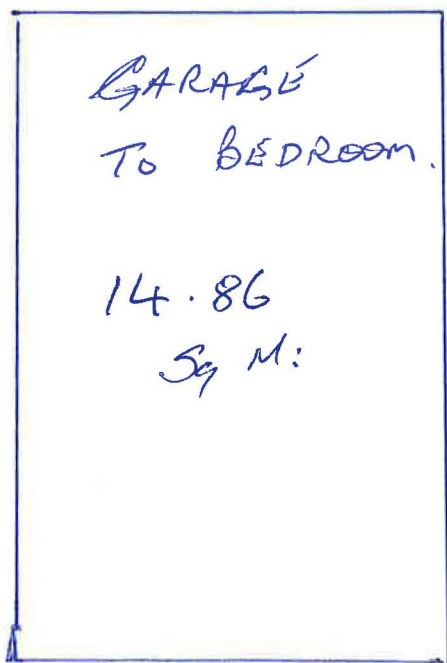 GARAGE
TO BEDROOM.
14.86
Sq M: